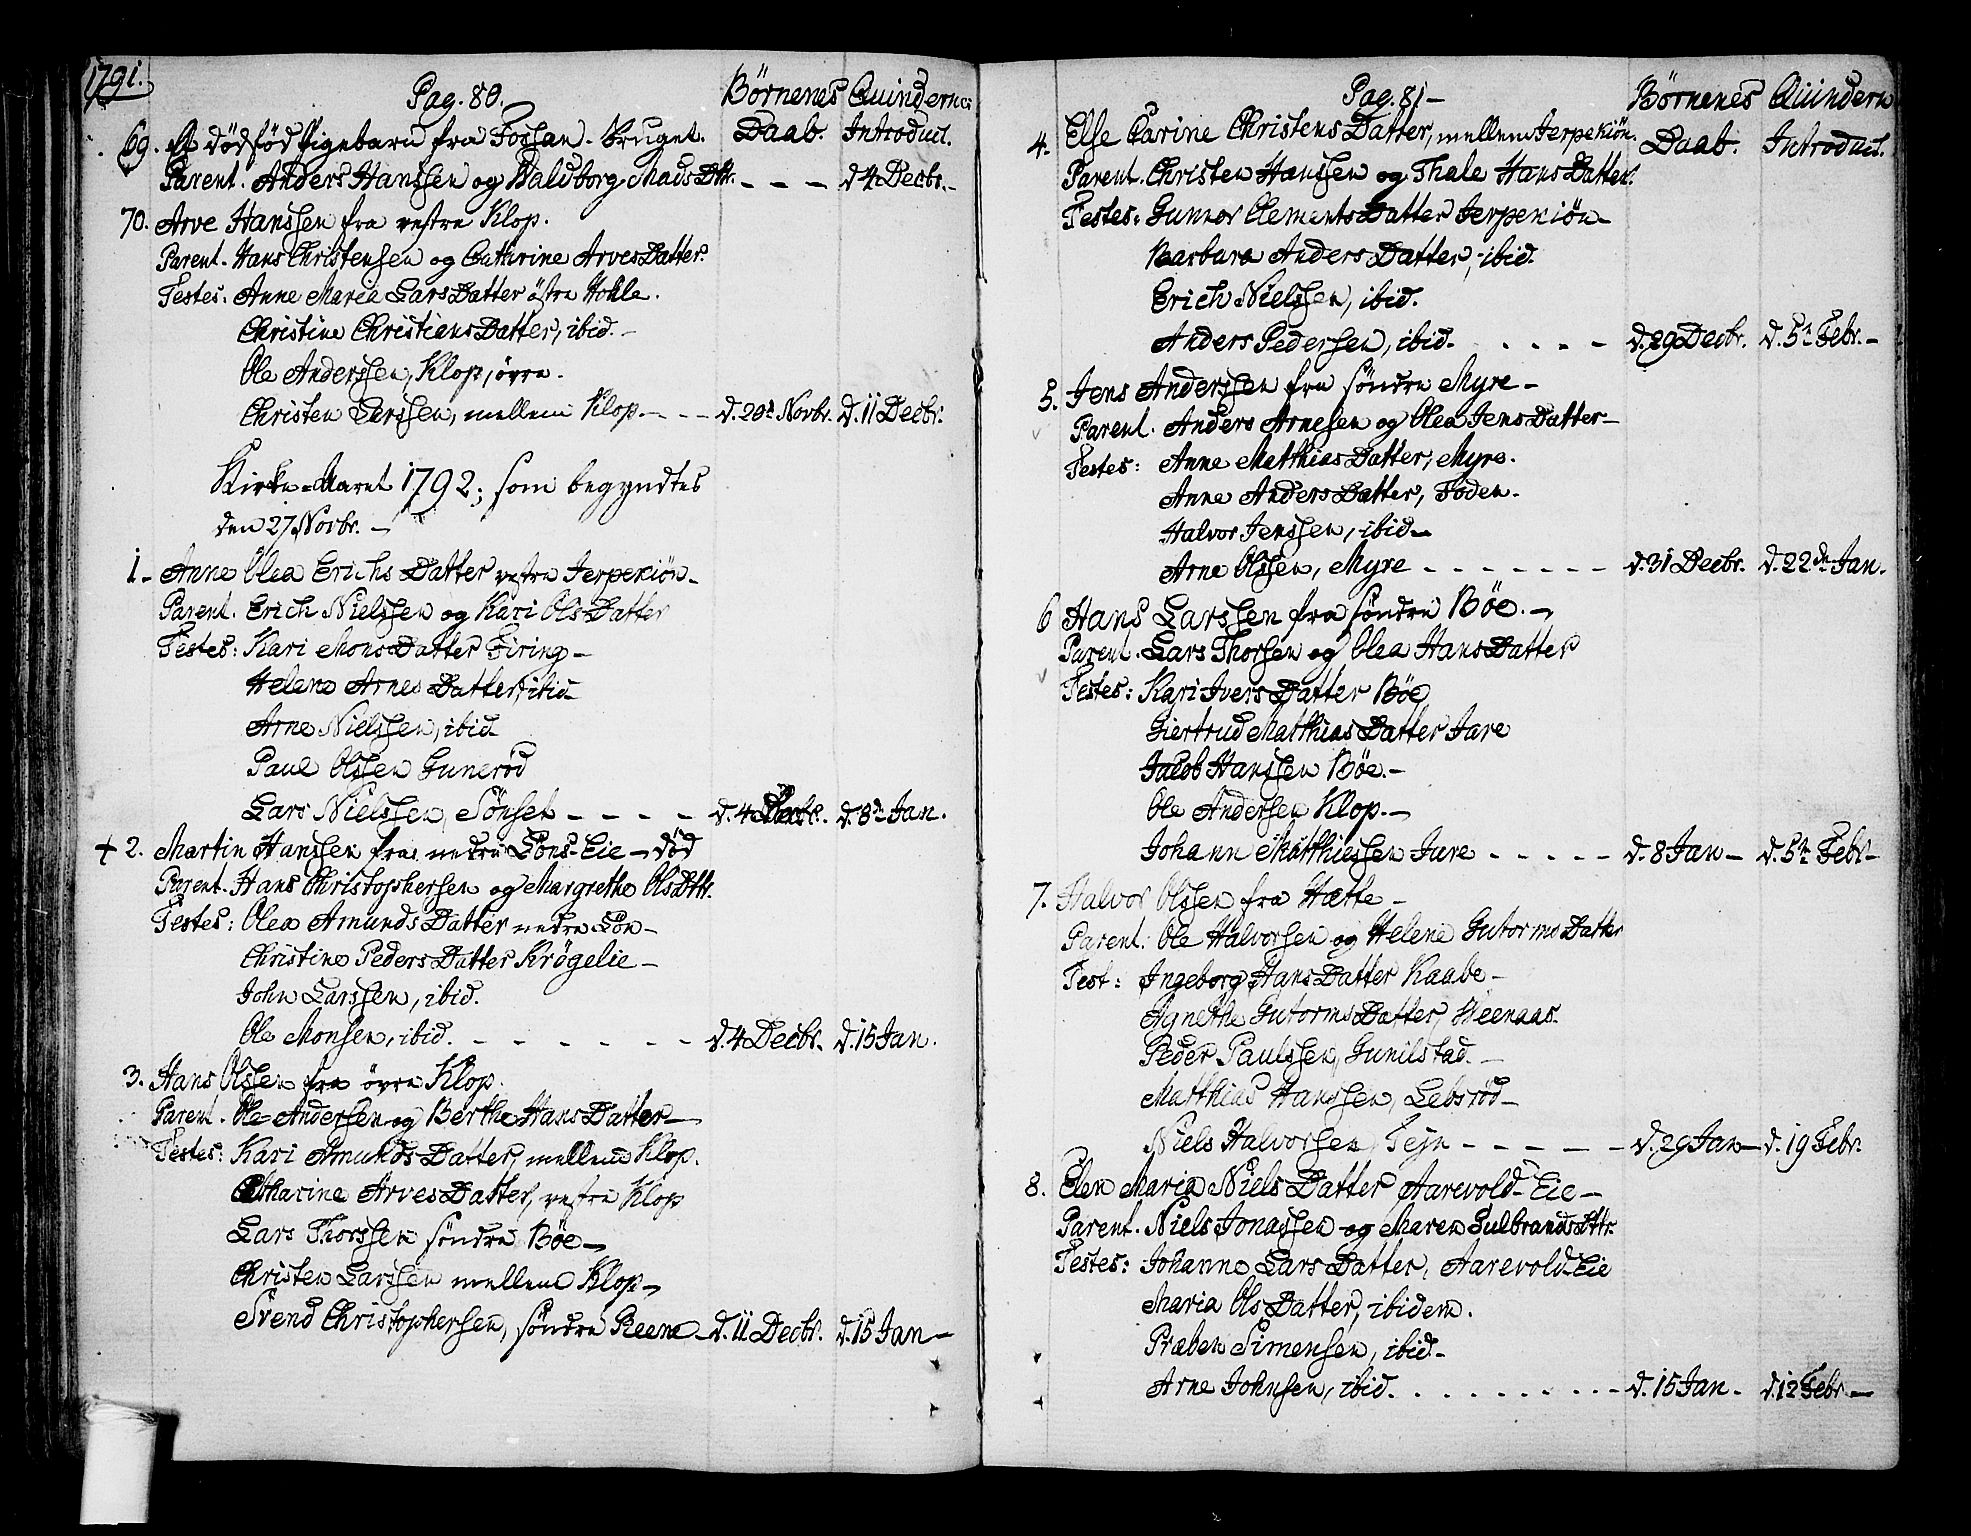 1791.
Pag. 80.
Børnenes Daab.
Quindernes Introduct.
69. Et dødfød Pigebarn fra Fossan-bruget.
Parent. Anders Hanssen og Waldborg Mads Dtr. - - - d. 4 Decbr. -
70. Arve Hanssen fra vestre Klop.
Parent. Hans Christensen og Cathrine Arves Datter.
Testes: Anne Maria Lars Datter østre Hohle.
Christine Christians Datter, ibid. -
Ole Anderssen, Klop, øvre.
Christen Larssen, mellem Klop. - - - d. 20de Novbr. d. 11 Decbr.
Kirke-Aaret 1792; som begyndtes
den 27 Novbr. -
1. Anne Olea Erichs Datter vestre Jerpekiøn -
Parent. Erich Nielssen og Kari Ols Datter
Testes: Kari Mons Datter Eiring -
Helene Arnes Datter, ibid -
Arne Nielssen, ibid.
Paul Olssen Gunerød
Lars Nielssen, Sønset - - - - d. 4 Decbr. d. 8de Jan.
+ 2. Martin Hanssen fra nedre Løns-Eie - død
Parent. Hans Christophersen og Margrethe Ols Dttr.
Testes: Olea Amunds Datter nedre Løn -
Christine Peders Datter Krøgelie -
John Larssen, ibid.
Ole Monsen, ibid. - - - - - - d. 4 Decbr. d. 15 Jan.
3. Hans Olssen fra øvre Klop.
Parent. Ole Andersen og Berthe Hans Datter -
Testes: Kari Amunds Datter, mellem Klop.
Catharine Arves Datter, vestre Klop
Lars Thorssen søndre Bøe -
Christen Larssen mellem Klop -
Svend Christophersen, søndre Reene - d. 11 Decbr. d. 15 Jan -
Pag. 81 -
Børnenes Daab.
Quindern Introduct.
4. Else Carine Christens Datter, mellem Jerpekiøn.
Parent. Christen Hanssen og Thale Hans Datter.
Testes: Gunnor Clements Datter Jerpekiøn -
Barbara Anders Datter, ibid.
Erich Nielssen, ibid.
Anders Pedersen, ibid. - - - - d. 29 Decbr. d. 5te Febr. -
5. Jens Anderssen fra søndre Myre -
Parent. Anders Arnesen og Olea Jens Datter -
Testes: Anne Matthias Datter, Myre.
Anne Anders Datter, Foden.
Halvor Jenssen, ibid -
Arne Olssen, Myre - - - - - - - d. 31 Decbr. d. 22de Jan.
6 Hans Larssen fra søndre Bøe. -
Parent. Lars Thorsen og Olea Hans Datter
Testes: Kari Ivers Datter Bøe
Giertrud Matthias Datter Jare
Jacob Hanssen Bøe. -
Ole Andersen Klop. -
Johann Matthiessen Jare - - - - - d. 8 Jan - d. 5te Febr -
7. Halvor Olssen fra Hætte -
Parent: Ole Halvorsen og Helene Gutorms Datter
Test: Ingeborg Hans Datter Kaabe -
Agnethe Gutorms Datter, Heenaas.
Peder Paulssen, Gunilstad. -
Matthias Hanssen, Lebsrød -
Niels Halvorsen, Tejn - - - - - d. 29 Jan - d. 19 Febr.
8. Elen Maria Niels Datter Aarevold-Eie -
Parent. Niels Jonassen og Maren Gulbrands Dttr.
Testes: Johanne Lars Datter, Aarevold-Eie
Maria Ols Datter, ibidem.
Præben Simensen, ibid. -
Arne Johnsen, ibid. . . . . . . . - d. 15 Jan - d. 12 Febr -